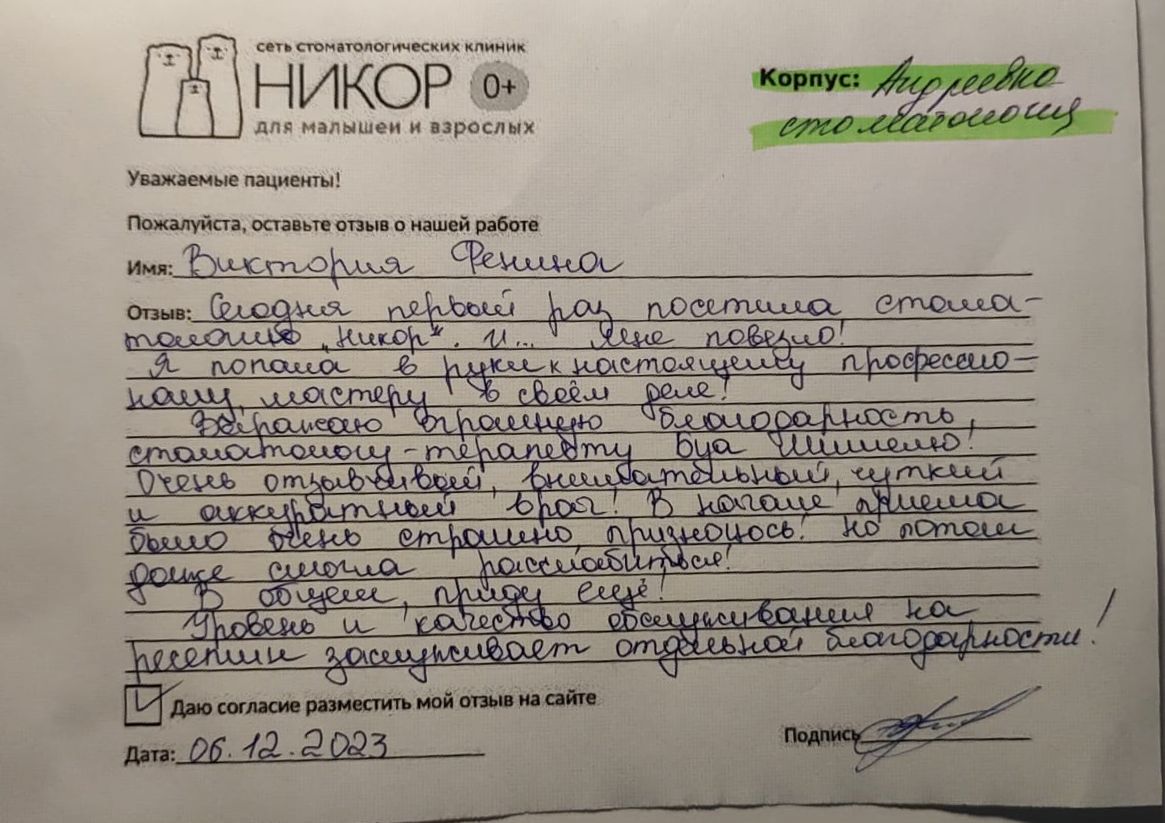 сеть стоматологических клиник
НИКОР 0+
для малышей и взрослых
Корпус: Андреевка
стоматология
Уважаемые пациенты!
Пожалуйста, оставьте отзыв о нашей работе
Имя: Виктория Фенина
Отзыв: Сегодня первый раз посетила стома-
тологию „Никор". И... мне повезло!
Я попала в руки к настоящему професско-
налу, мастеру в своём деле!
Выражаю огромную благодарность,
стоматологу-терапевту Буа Мишелю!
Очень отзывчивый, внимательный, чуткий
и аккуратный врач! В начале приема
было очень страшно, признаюсь! Но потом
даже смогла расслабиться!
В общем, приду ещё!
Уровень и качество обслуживания на
ресепшн заслуживает отдельной благодарности!
Даю согласие разместить мой отзыв на сайте
Дата: 06.12.2023
Подпись